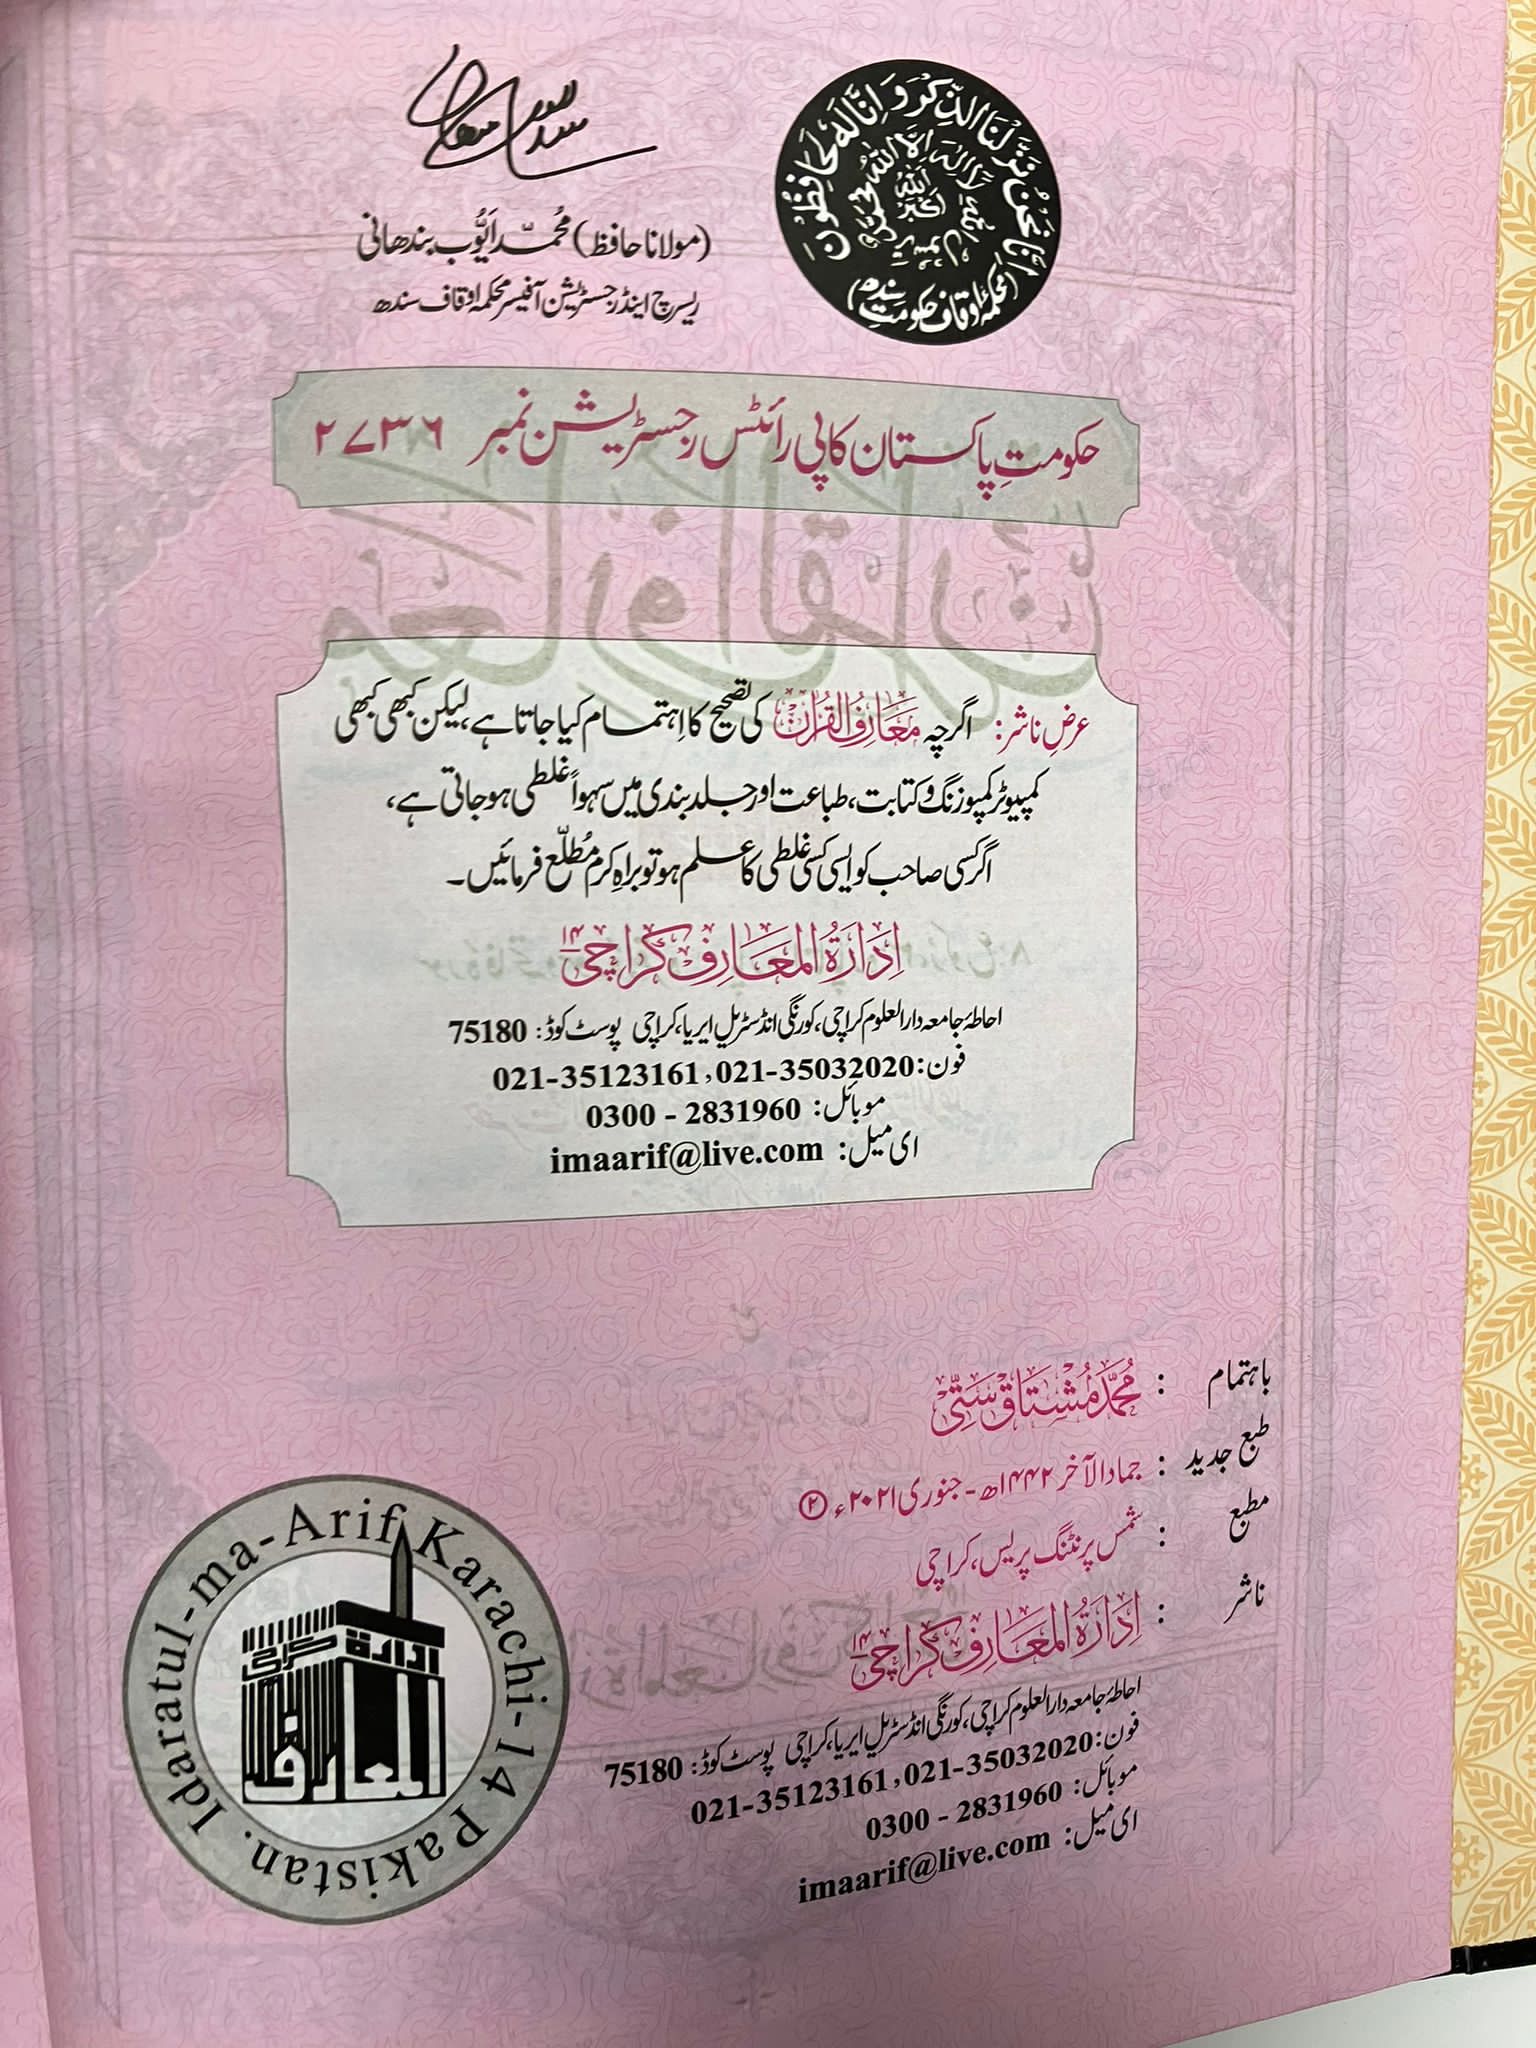 اِنَّا نَحْنُ نَزَّلْنَا الذِّكْرَ وَ اِنَّا لَهٗ لَحَافِظُوْنَ
لَا اِلٰهَ اِلَّا اللّٰهُ مُحَمَّدٌ رَّسُوْلُ اللّٰهِ
اَللّٰهُ اَكْبَرُ
(محکمۂ اوقاف حکومتِ سندھ)
(مولانا حافظ) مُحمّد ایُّوب بندھانی
ریسرچ اینڈ رجسٹریشن آفیسر محکمہ اوقاف سندھ
حکومتِ پاکستان کاپی رائٹس رجسٹریشن نمبر ۲۷۳۶
عرضِ ناشر: اگرچہ مَعَارِفُ القُرآن کی تصحیح کا اِہتمام کیا جاتا ہے، لیکن کبھی کبھی
کمپیوٹر کمپوزنگ و کتابت، طباعت اور جلد بندی میں سہواً غلطی ہو جاتی ہے،
اگر کسی صاحب کو ایسی کسی غلطی کا علم ہو تو براہِ کرم مُطلّع فرمائیں۔
اِدَارَةُ المَعَارِف کراچی ۱۴
احاطۂ جامعہ دارالعلوم کراچی، کورنگی انڈسٹریل ایریا، کراچی پوسٹ کوڈ: 75180
فون: 021-35123161, 021-35032020
موبائل: 0300 - 2831960
ای میل: imaarif@live.com
باہتمام : مُحَمَّد مُشتَاق سَتِّی
طبع جدید : جمادالآخر ۱۴۴۲ھ - جنوری ۲۰۲۱ء ۲
مطبع : شمس پرنٹنگ پریس، کراچی
ناشر : اِدَارَةُ المَعَارِف کراچی ۱۴
احاطۂ جامعہ دارالعلوم کراچی، کورنگی انڈسٹریل ایریا، کراچی پوسٹ کوڈ: 75180
فون: 021-35123161, 021-35032020
موبائل: 0300 - 2831960
ای میل: imaarif@live.com
Idaratul-ma-Arif Karachi-14 Pakistan.
ادارة
المعارف
کراچی